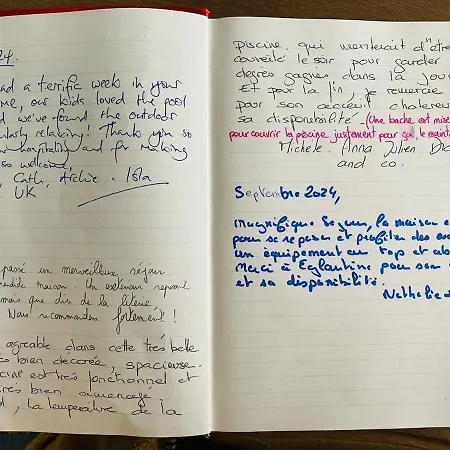 24.
had a terrific week in your
me, our kids loved the pool
d we've found the outdoor
ularly relaxing! Thank you so
hospitality and for making
so welcome,
, Cath, Archie . Isla
UK
passé un merveilleux séjour
maison. Un extérieur reposant
mais que dire de la literie
Nous recommandons fortement !
agreable dans cette très belle
s bien décorée, spacieuse.
cine est très fonctionnel et
très bien aménagé.
, la température de la
piscine qui mériterait d'être
couverte le soir pour garder
degrés gagnés dans la jour
Et pour la fin, je remercie
pour son accueil chaleureu
sa disponibilité. (Une bache est mise
pour couvrir la piscine justement pour ça, le maint
Michele. Anna Julien
and co.
Septembre 2024,
Magnifique Sejour, la maison e
pour se reposer et profiter des
un équipement au top et
Merci à Eglantine pour son
et sa disponibilité.
Nathalie